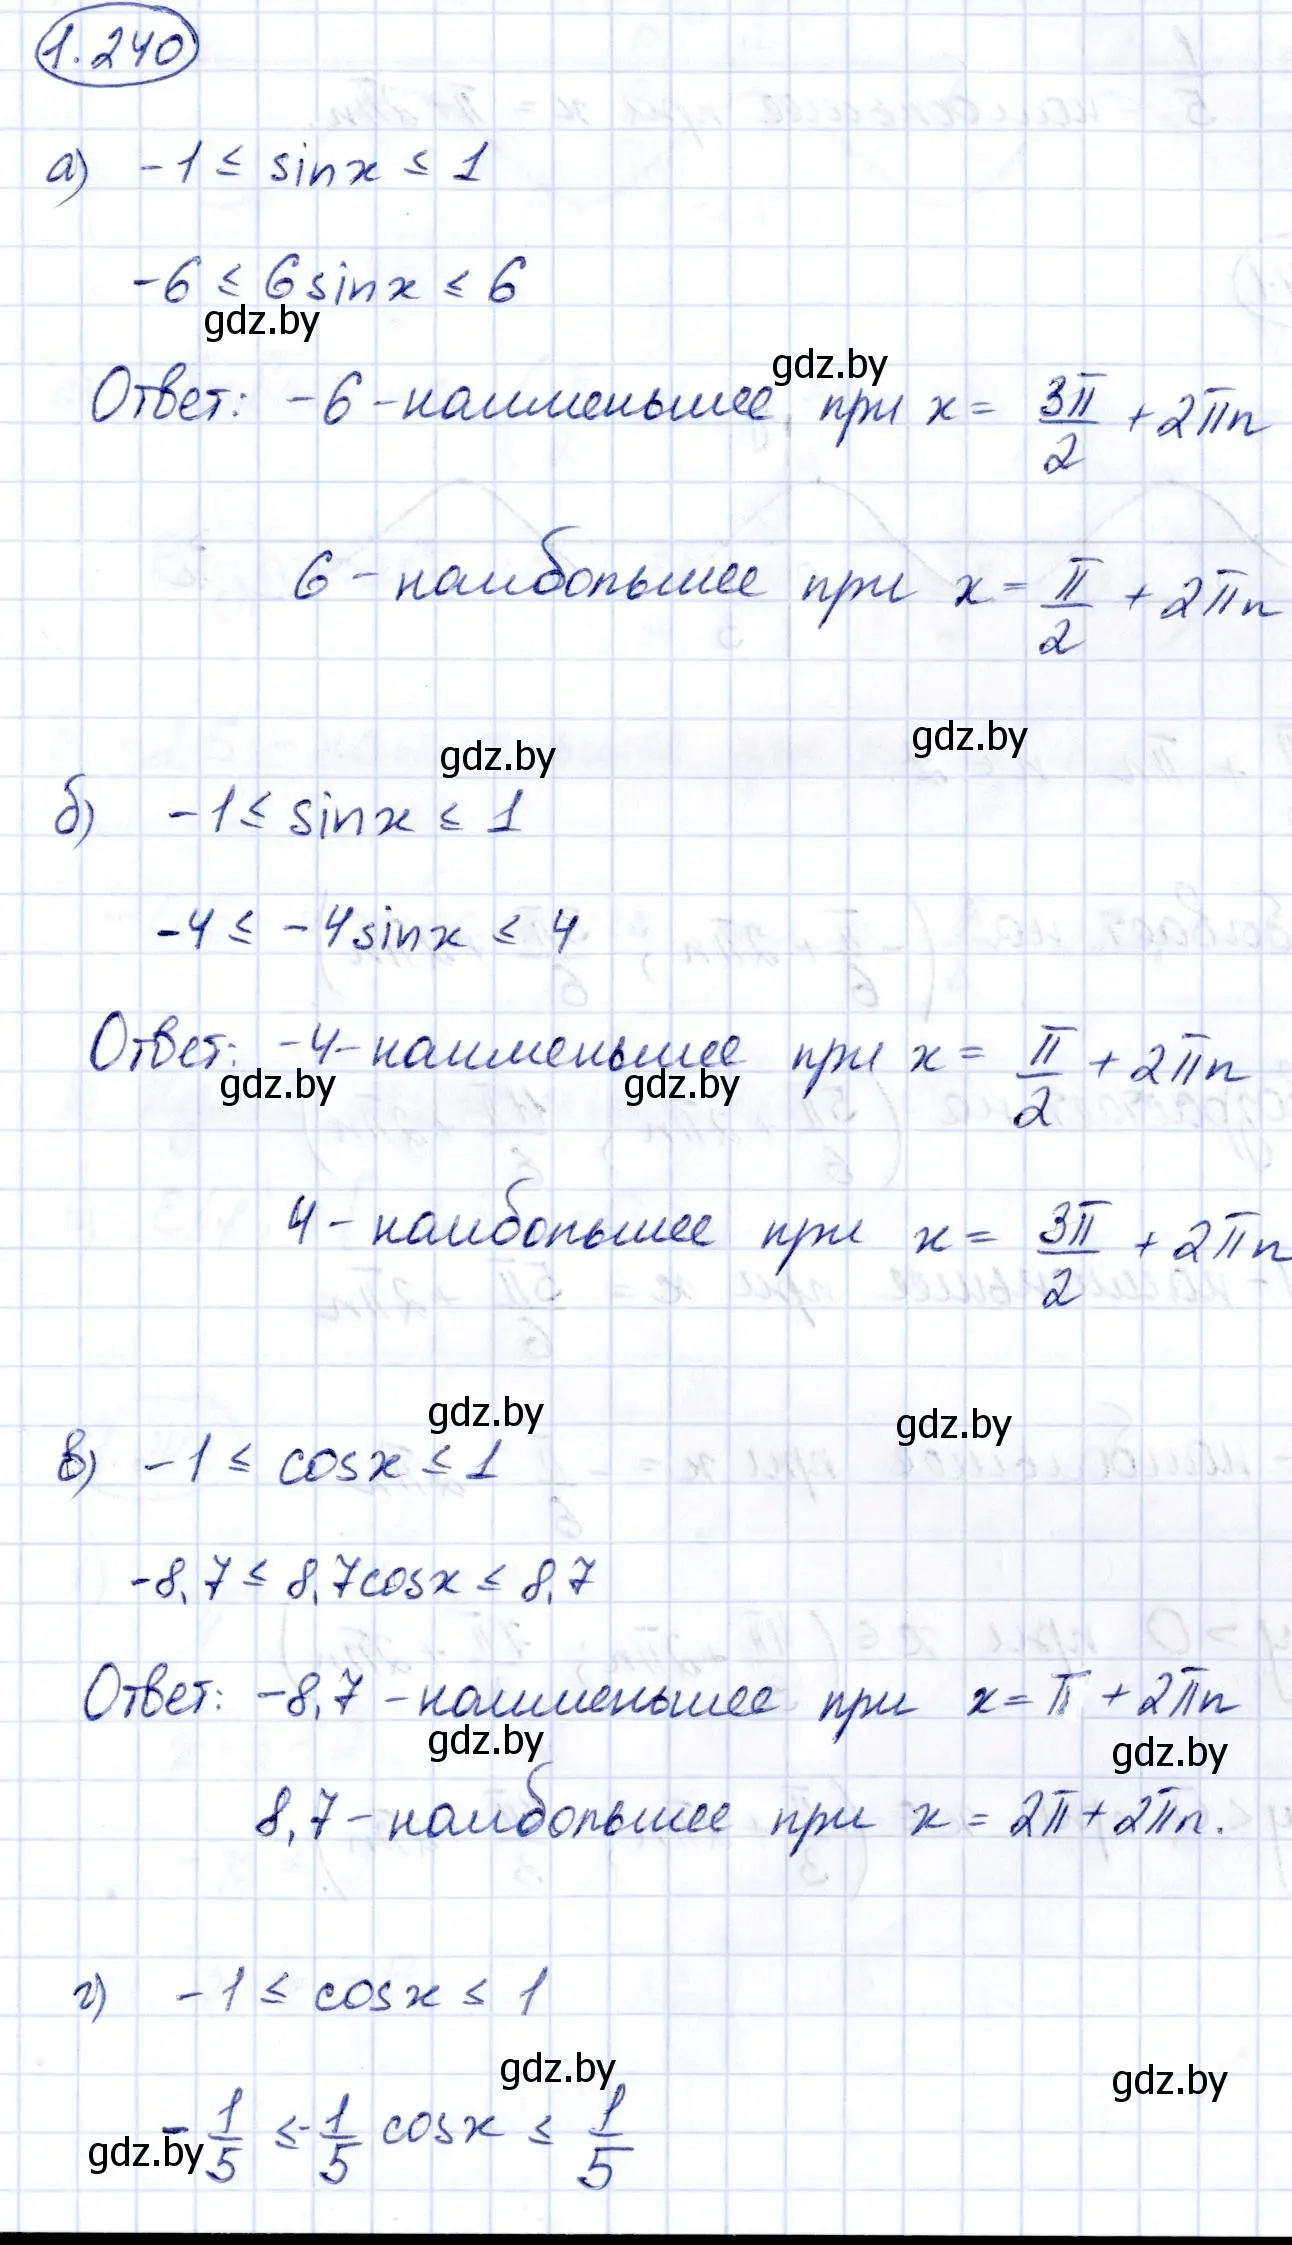 1.240
а) -1 ≤ sinx ≤ 1
-6 ≤ 6sinx ≤ 6
gdz.by
gdz.by
Ответ: -6 - наименьшее при x = 3π/2 + 2πn
6 - наибольшее при x = π/2 + 2πn
gdz.by
gdz.by
б) -1 ≤ sinx ≤ 1
-4 ≤ -4sinx ≤ 4
Ответ: -4 - наименьшее при x = π/2 + 2πn
gdz.by
gdz.by
4 - наибольшее при x = 3π/2 + 2πn
gdz.by
gdz.by
в) -1 ≤ cosx ≤ 1
-8,7 ≤ 8,7cosx ≤ 8,7
Ответ: -8,7 - наименьшее при x = π + 2πn
gdz.by
gdz.by
8,7 - наибольшее при x = 2π + 2πn.
г) -1 ≤ cosx ≤ 1
gdz.by
gdz.by
-1/5 ≤ -1/5 cosx ≤ 1/5
gdz.by